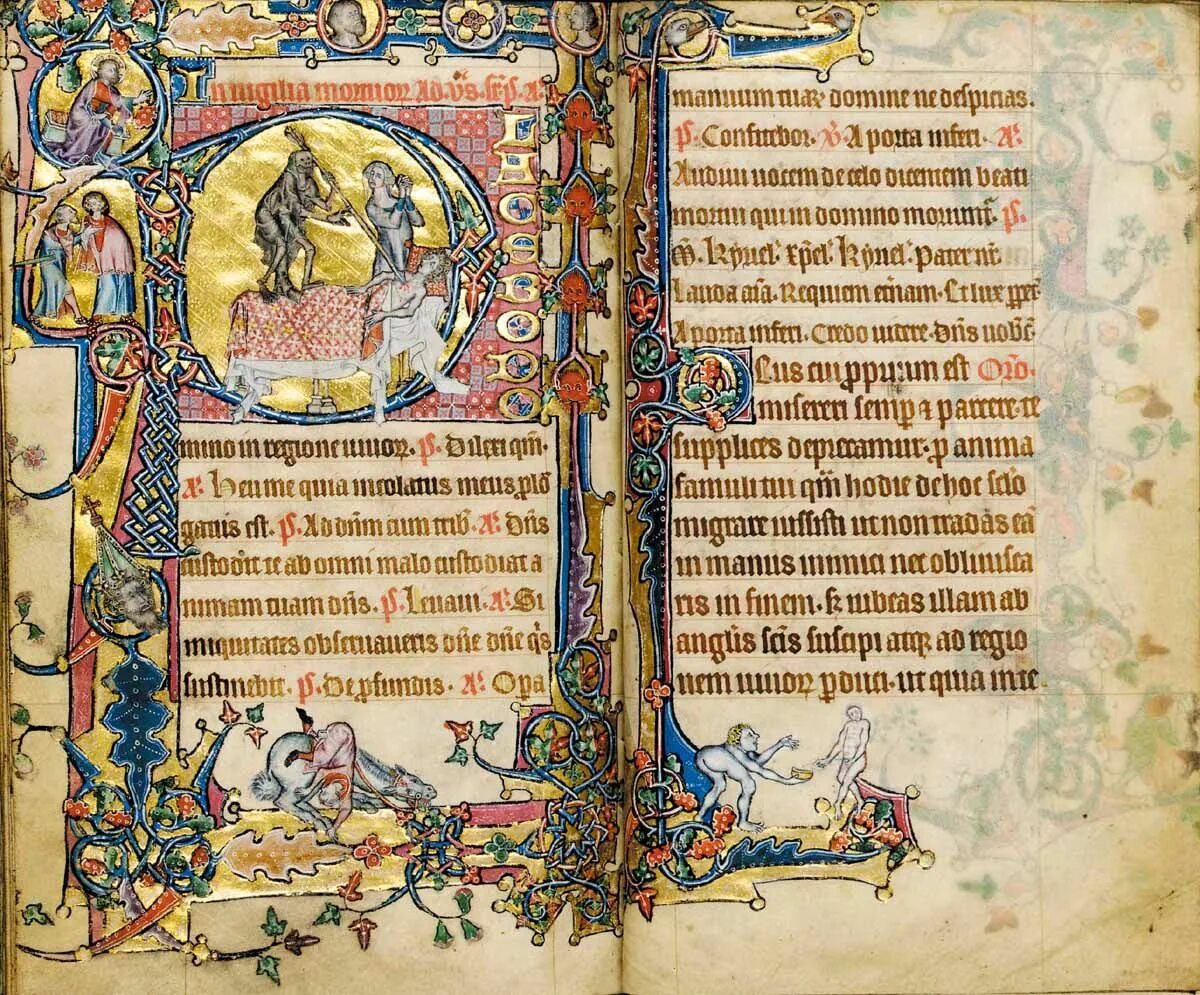 In uigilia mortuor Ad
P
LACEBO DO
mino in regione uiuor. p̃s. Dilexi qm̃.
A. Heu me quia incolatus meus plõ
gatus est. p̃s. Ad dñm cum trib̃. A. Dñs
custodit te ab omni malo custodiat a
nimam tuam dñs. p̃s. Leuaui. A. Si
iniquitates obseruaueris dñe dñe qis
sustinebit. p̃s. De pfundis. A. Opa
manuum tuar domine ne despicias.
p̃s. Confitebor. V A porta inferi. A.
Audiui uocem de celo dicentem beati
mortui qui in domino moriunt. p̃s.
M. Kyriel. xp̃el. Kyriel. Pater nr̃.
Lauda aĩa. Requiem etñam. Et lux ppet
A porta inferi. Credo uidere. Dñs uobc̃.
Deus cui ppium est Orõ.
misereri semp ⁊ parcere te
supplices deprecamur. p anima
famuli tui qm̃ hodie de hoc sclo
migrare iussisti ut non tradas eã
in manus inimici nec obliuisca
ris in finem. s; iubeas illam ab
anglis scis suscipi atqꝫ ad regio
nem uiuor pduci. ut quia in te